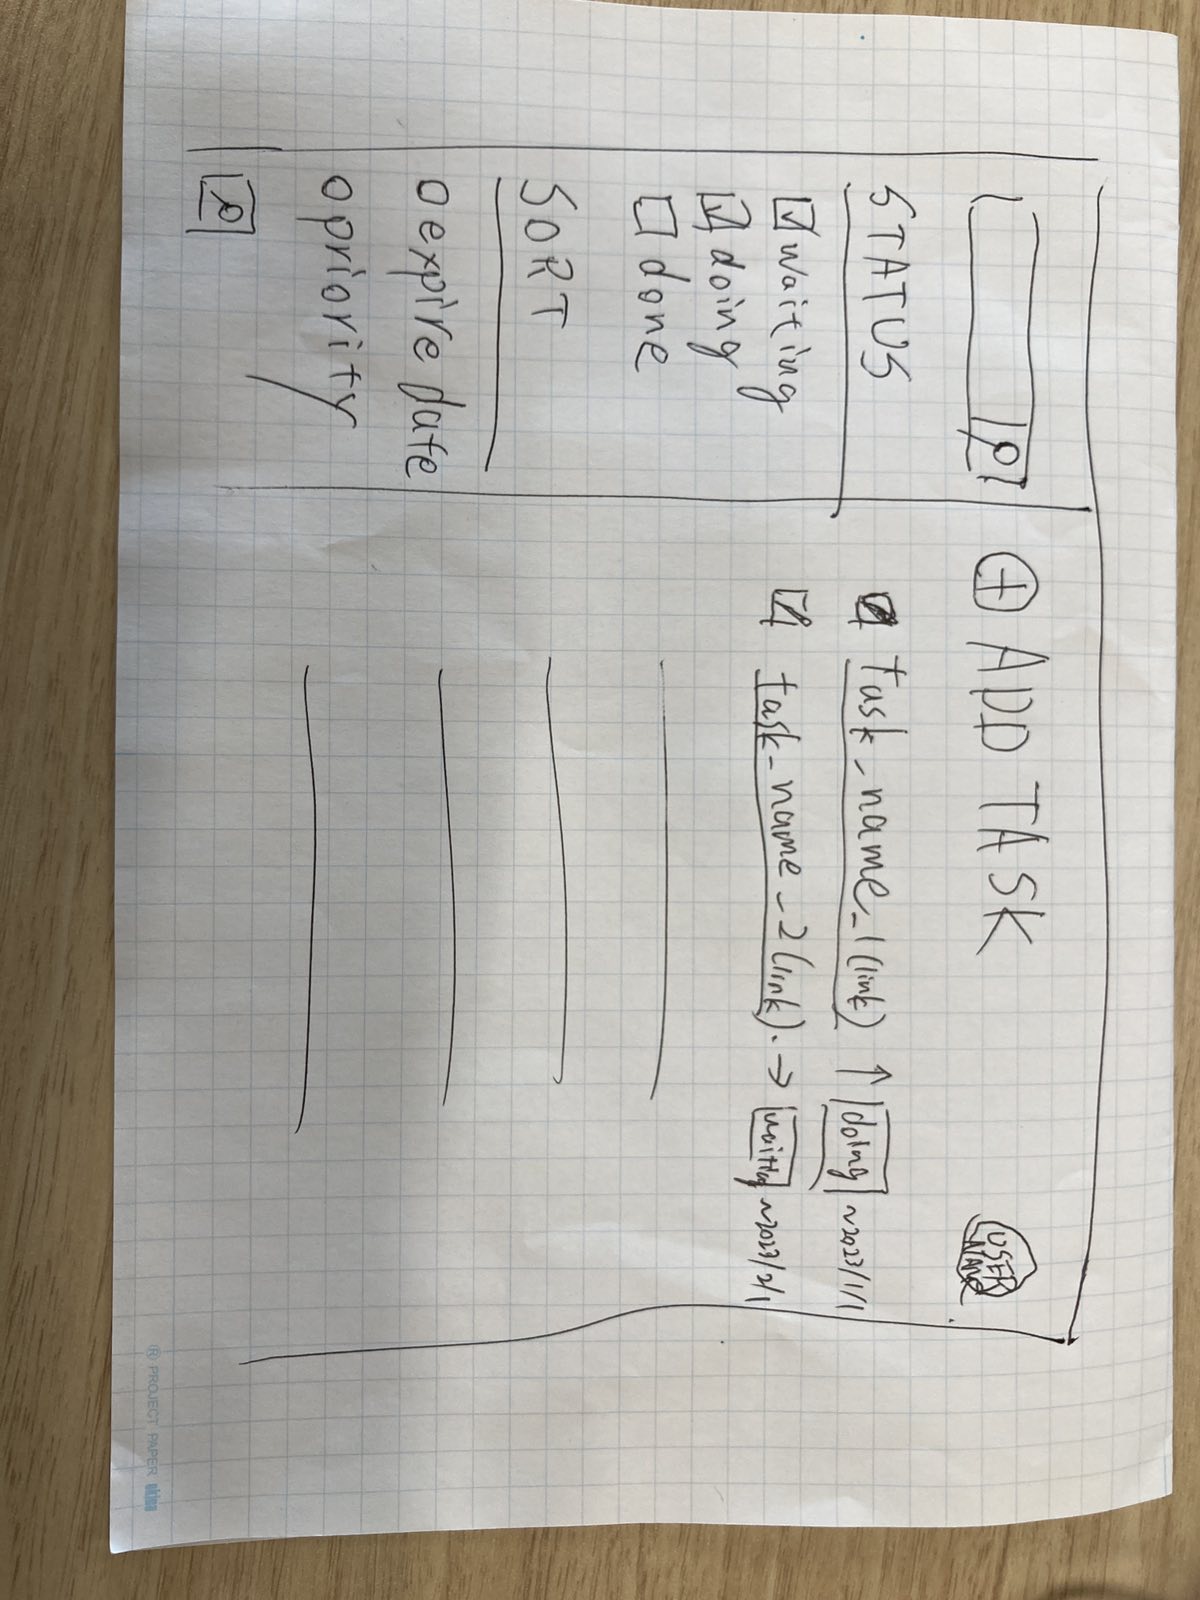 STATUS
waiting
doing
done
SORT
expire date
priority
ADD TASK
USER
NAME
task_name_1(link) ↑ doing ~2023/1/1
task_name_2(link). → waiting ~2023/2/1
PROJECT PAPER